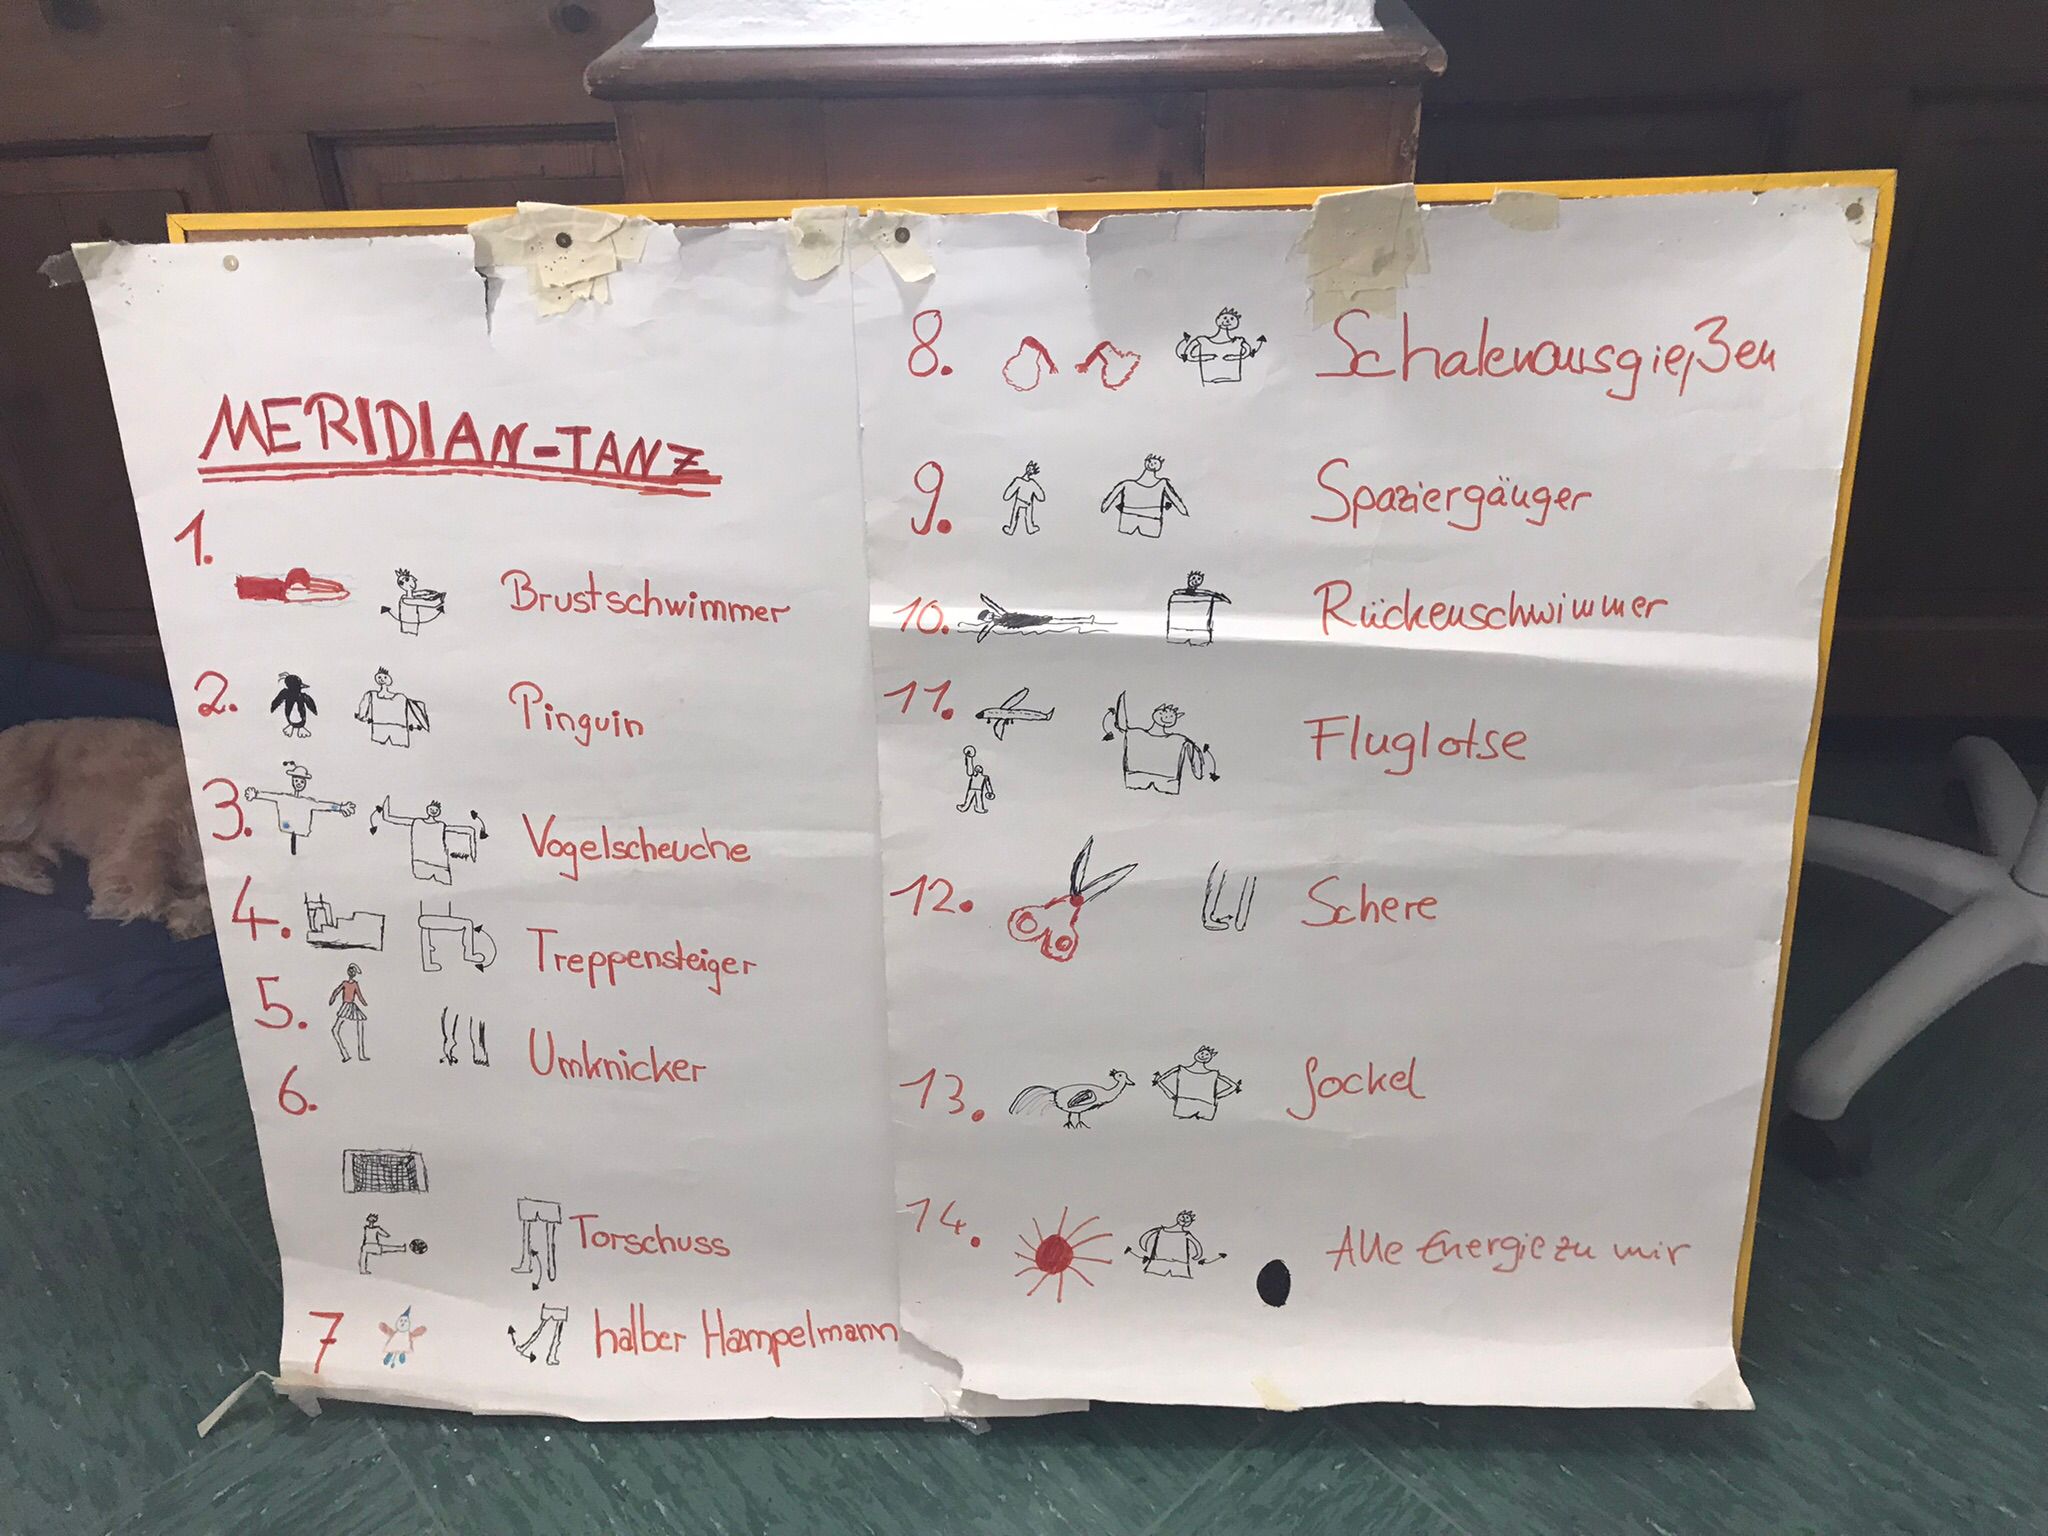 MERIDIAN-TANZ
1. Brustschwimmer
2. Pinguin
3. Vogelscheuche
4. Treppensteiger
5. Umknicker
6. Torschuss
7 halber Hampelmann
8. Schalenausgießen
9. Spaziergänger
10. Rückenschwimmer
11. Fluglotse
12. Schere
13. Gockel
14. Alle Energie zu mir